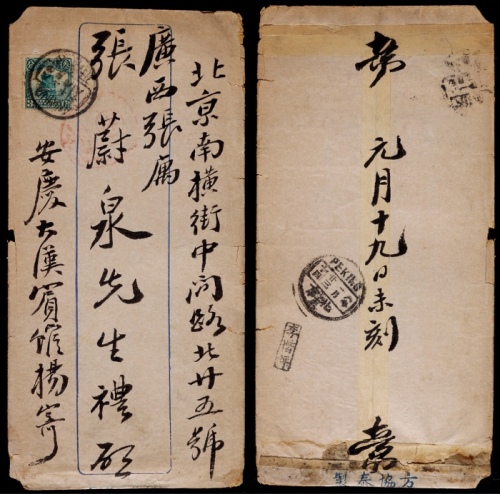 北京南橫街中間路北廿五號
廣西張寓
張蔚泉先生禮啟
安慶大漢賓館楊寄
元月十九日未刻
PEKING
李楷
方協泰製